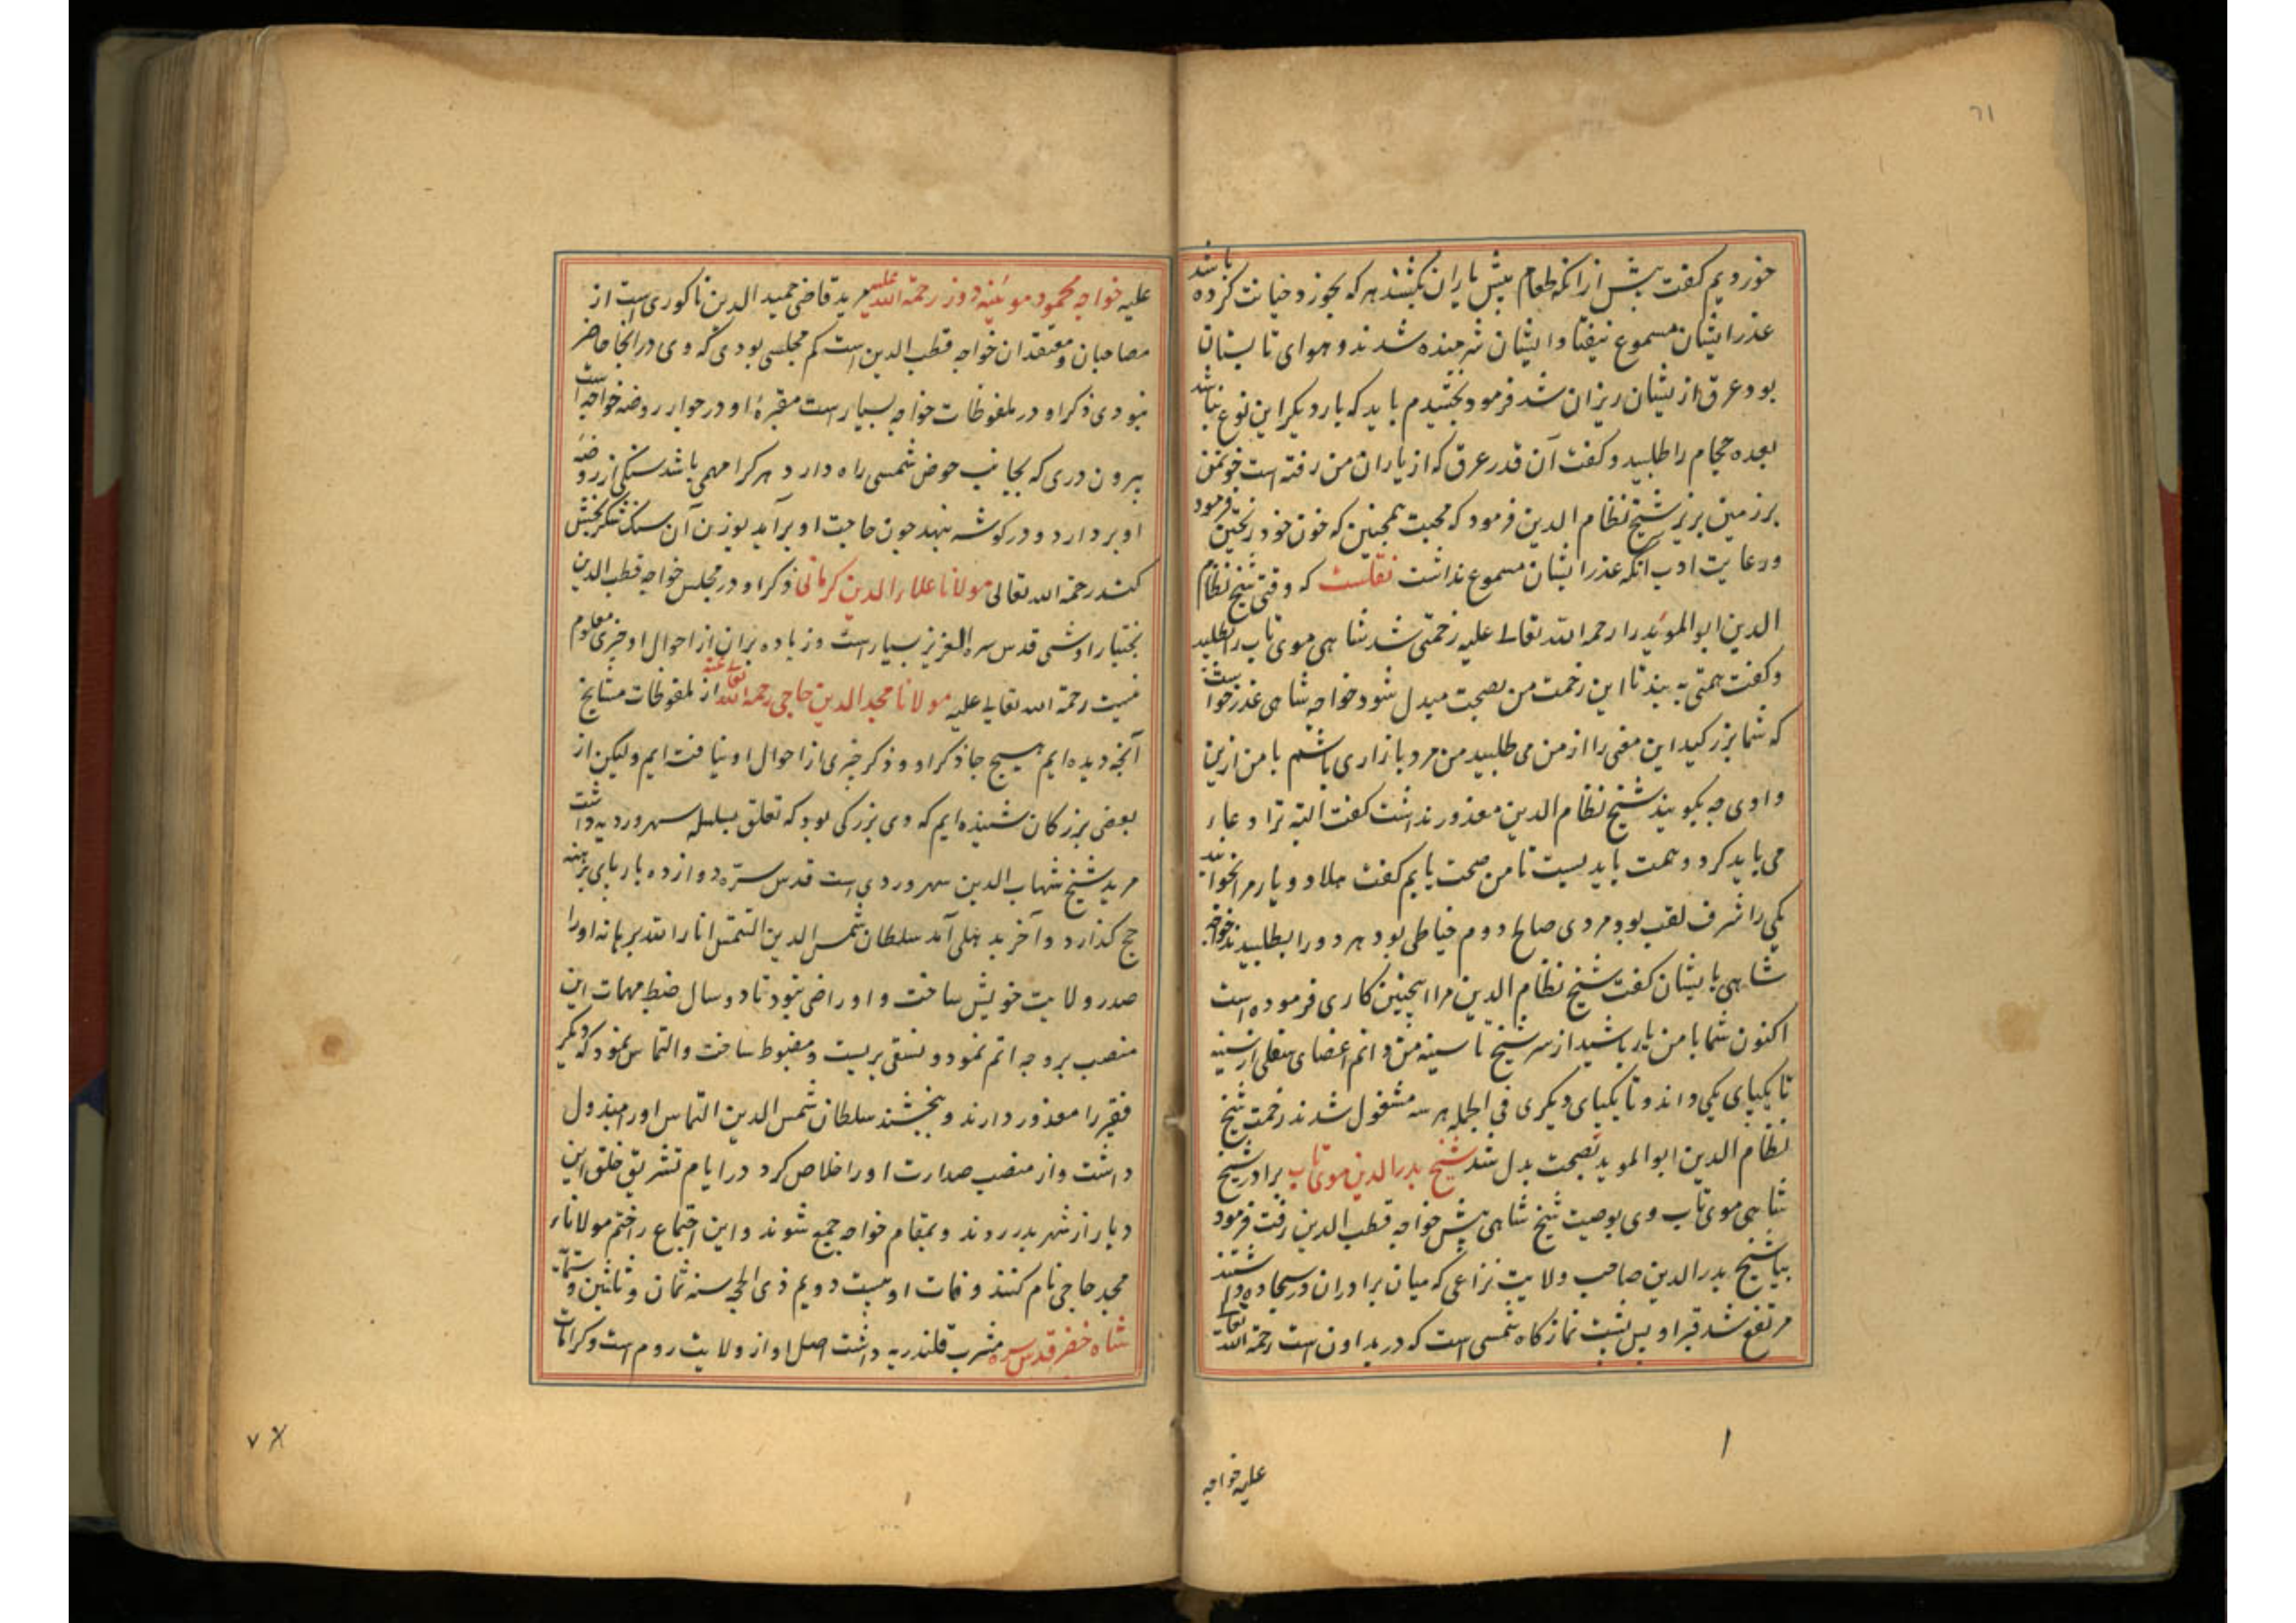 ٦١
خوردیم کفت پیش از انکه طعام پیش یاران بکشند هر که بخورد خیانت کرده باشد
عذر ایشان مسموع نیفتاد ایشان شرمنده شدند و هوای تابستان
بود عرق از ایشان ریزان شد فرمود بخشیدم باید که بار دیکر این نوع نباشد
بعده حجام را طلبید و کفت آن قدر عرق که از یاران من رفته است خون من
بر زمین بریز شیخ نظام الدین فرمود که محبت همچنین که خون خود ریختن فرمود
و رعایت ادب آنکه عذر ایشان مسموع نداشت نقلست که وقتی شیخ نظام
الدین ابو الموئید را رحمه الله تعالے علیه زحمتی شد شاهی موی تاب را طلبید
و کفت همتی به بند تا این زحمت من بصحت مبدل شود خواجه شاهی عذر خواست
که شما بزرکید این معنی را از من می طلبید من مرد بازاری باشم با من ازین
وادی چه بکویند شیخ نظام الدین معذور نداشت کفت البته ترا دعاء
می باید کرد و همت باید بست تا من صحت یابم کفت هلا دو یار مرا بخوانید
یکی را شرف لقب بود مردی صالح دوم خیاطی بود هر دو را بطلبیدند خواجه
شاهی با ایشان کفت شیخ نظام الدین مرا اینچنین کاری فرموده است
اکنون شما با من یار باشید از سر شیخ تا سینه من دانم اعضای سفلی از سینه
تا یکپای یکی داند و تا یکپای دیکری فی الجمله هر سه مشغول شدند زحمت شیخ
نظام الدین ابو الموید بصحت بدل شد شیخ بدر الدین موی تاب برادر شیخ
شاهی موی تاب وی بوصیت شیخ شاهی پیش خواجه قطب الدین رفت فرمود
بیا شیخ بدر الدین صاحب ولایت نزاعی که میان برادران در سجاده داشتند
مرتفع شد قبر او پس پشت نماز کاه شمسی است که در بداون است رحمة الله تعالے
علیه خواجه
علیه خواجه محمود موئینه دوز رحمة الله علیه مرید قاضی حمید الدین ناکوری است از
مصاحبان و معتقدان خواجه قطب الدین است کم مجلسی بودی که وی در انجا حاضر
نبودی ذکر او در ملفوظات خواجه بسیار است مقبرهٔ او در جوار روضه خواجه است
بیرون دری که بجانب حوض شمسی راه دارد هر کرا مهمی باشد سنکی از روضهٔ
او بردارد و در کوشه بنهد چون حاجت او برآید بوزن آن سنک شکر بخش
کند رحمة الله تعالی مولانا علاء الدین کرمانی ذکر او در مجلس خواجه قطب الدین
بختیار اوشی قدس سره العزیز بسیار است و زیاده بران از احوال او خبری معلوم
نیست رحمة الله تعالے علیه مولانا مجد الدین حاجی رحمة الله تعا عنه از ملفوظات مشایخ
آنچه دیده ایم هیچ جا ذکر او و ذکر خبری از احوال او نیافت ایم و لیکن از
بعضی بزرکان شنیده ایم که وی بزرکی بود که تعلق بسلسله سهروردیه داشت
مرید شیخ شهاب الدین سهروردی است قدس سرّه دوازده بار بپای برهنه
حج کذارد و آخر بدهلی آمد سلطان شمس الدین التمش انار الله برهانه او را
صدر ولایت خویش ساخت و او راضی نبود تا دو سال ضبط مهمات این
منصب بر وجه اتم نمود و نسقی بر بست و مضبوط ساخت و التماس نمود که دیکر
فقیر را معذور دارند و ببخشند سلطان شمس الدین التماس او را مبذول
داشت و از منصب صدارت او را خلاص کرد در ایام تشریق خلق این
دیار از شهر بدر روند و بمقام خواجه جمع شوند و این اجتماع را ختم مولاناء
مجد حاجی نام کنند وفات او بیست دویم ذی الحجه سنه ثمان و ثلثین و ستمائة
شاه خضر قدس سره مشرب قلندریه داشت اصل او از ولایت روم است و کرامات